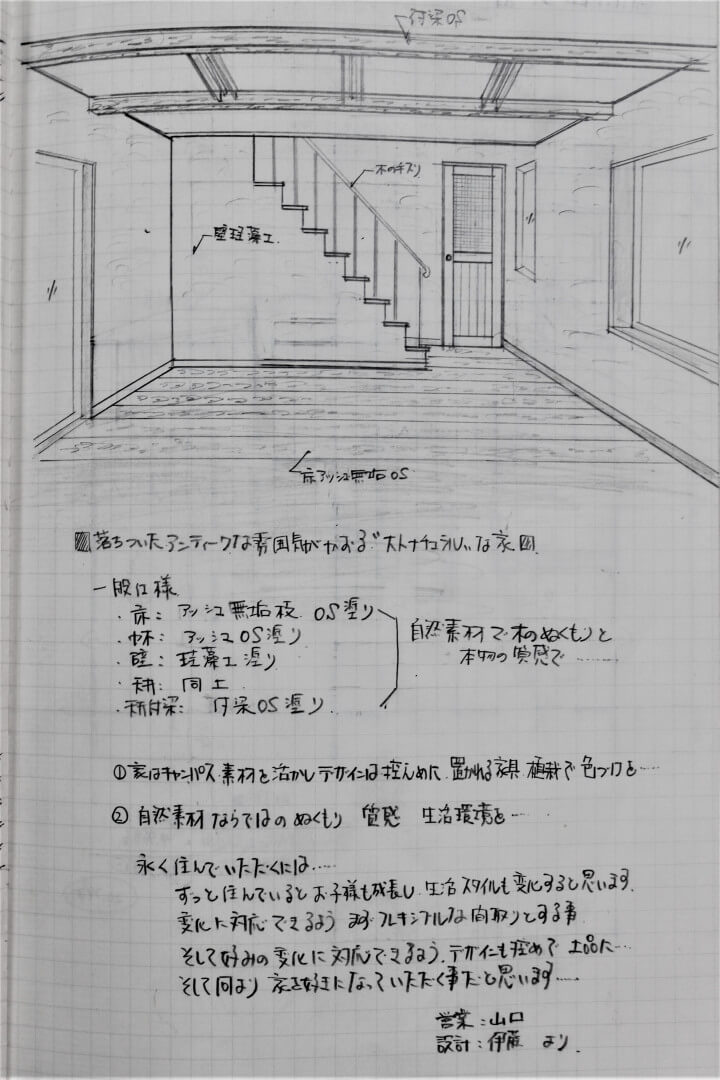 付梁OS
木の手スリ
壁珪藻土
床アッシュ無垢OS
落ちついたアンティークな雰囲気がかおる“大人ナチュラル”な家
一般仕様
・床: アッシュ無垢板 OS塗り
・巾木: アッシュOS塗り
・壁: 珪藻土塗り
・天井: 同上
・天井付梁: 付梁OS塗り
自然素材で木のぬくもりと
本物の質感で……
① 家はキャンバス 素材を活かしデザインは控えめに 置かれる家具 植栽で色づけを……
② 自然素材ならではのぬくもり 質感 生活環境を…
永く住んでいただくには……
ずっと住んでいるとお子様も成長し 生活スタイルも変化すると思います。
変化に対応できるよう まず フレキシブルな間取りとする事
そして好みの変化に対応できるよう、デザインも控めで 上品に…
そして何より 家を好きになっていただく事だと思います……
営業:山口
設計:伊藤 より